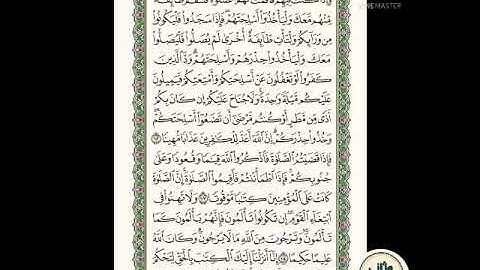 وَإِذَا كُنتَ فِيهِمْ فَأَقَمْتَ لَهُمُ ٱلصَّلَوٰةَ فَلْتَقُمْ طَآئِفَةٌ
مِّنْهُم مَّعَكَ وَلْيَأْخُذُوٓا۟ أَسْلِحَتَهُمْ فَإِذَا سَجَدُوا۟ فَلْيَكُونُوا۟
مِن وَرَآئِكُمْ وَلْتَأْتِ طَآئِفَةٌ أُخْرَىٰ لَمْ يُصَلُّوا۟ فَلْيُصَلُّوا۟
مَعَكَ وَلْيَأْخُذُوا۟ حِذْرَهُمْ وَأَسْلِحَتَهُمْ ۗ وَدَّ ٱلَّذِينَ
كَفَرُوا۟ لَوْ تَغْفُلُونَ عَنْ أَسْلِحَتِكُمْ وَأَمْتِعَتِكُمْ فَيَمِيلُونَ
عَلَيْكُم مَّيْلَةً وَٰحِدَةً ۚ وَلَا جُنَاحَ عَلَيْكُمْ إِن كَانَ بِكُمْ
أَذًى مِّن مَّطَرٍ أَوْ كُنتُم مَّرْضَىٰٓ أَن تَضَعُوٓا۟ أَسْلِحَتَكُمْ ۖ
وَخُذُوا۟ حِذْرَكُمْ ۗ إِنَّ ٱللَّهَ أَعَدَّ لِلْكَٰفِرِينَ عَذَابًا مُّهِينًا ١٠٢
فَإِذَا قَضَيْتُمُ ٱلصَّلَوٰةَ فَٱذْكُرُوا۟ ٱللَّهَ قِيَٰمًا وَقُعُودًا وَعَلَىٰ
جُنُوبِكُمْ ۚ فَإِذَا ٱطْمَأْنَنتُمْ فَأَقِيمُوا۟ ٱلصَّلَوٰةَ ۚ إِنَّ ٱلصَّلَوٰةَ
كَانَتْ عَلَى ٱلْمُؤْمِنِينَ كِتَٰبًا مَّوْقُوتًا ١٠٣ وَلَا تَهِنُوا۟ فِى
ٱبْتِغَآءِ ٱلْقَوْمِ ۖ إِن تَكُونُوا۟ تَأْلَمُونَ فَإِنَّهُمْ يَأْلَمُونَ كَمَا
تَأْلَمُونَ ۖ وَتَرْجُونَ مِنَ ٱللَّهِ مَا لَا يَرْجُونَ ۗ وَكَانَ ٱللَّهُ
عَلِيمًا حَكِيمًا ١٠٤ إِنَّآ أَنزَلْنَآ إِلَيْكَ ٱلْكِتَٰبَ بِٱلْحَقِّ لِتَحْكُمَ